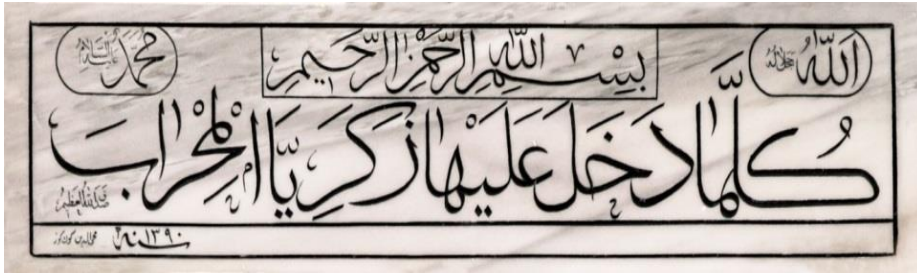 الله جل جلاله
بِسْمِ اللهِ الرَّحْمٰنِ الرَّحِيمِ
محمد عليه السلام
كُلَّمَا دَخَلَ عَلَيْهَا زَكَرِيَّا الْمِحْرَابَ
صدق الله العظيم
سنه ١٣٩٠